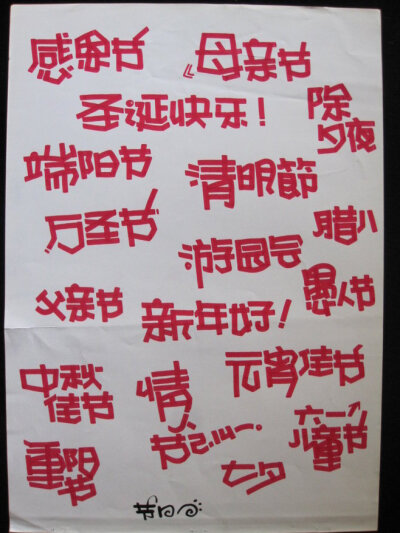 感恩节
母亲节
圣诞快乐！
除
夕夜
端阳节
清明節
万圣节
腊八
游园会
愚人节
父亲节
新年好！
元宵佳节
中秋
佳节
情
人
节
六一
儿童节
重阳
节
七夕
节日